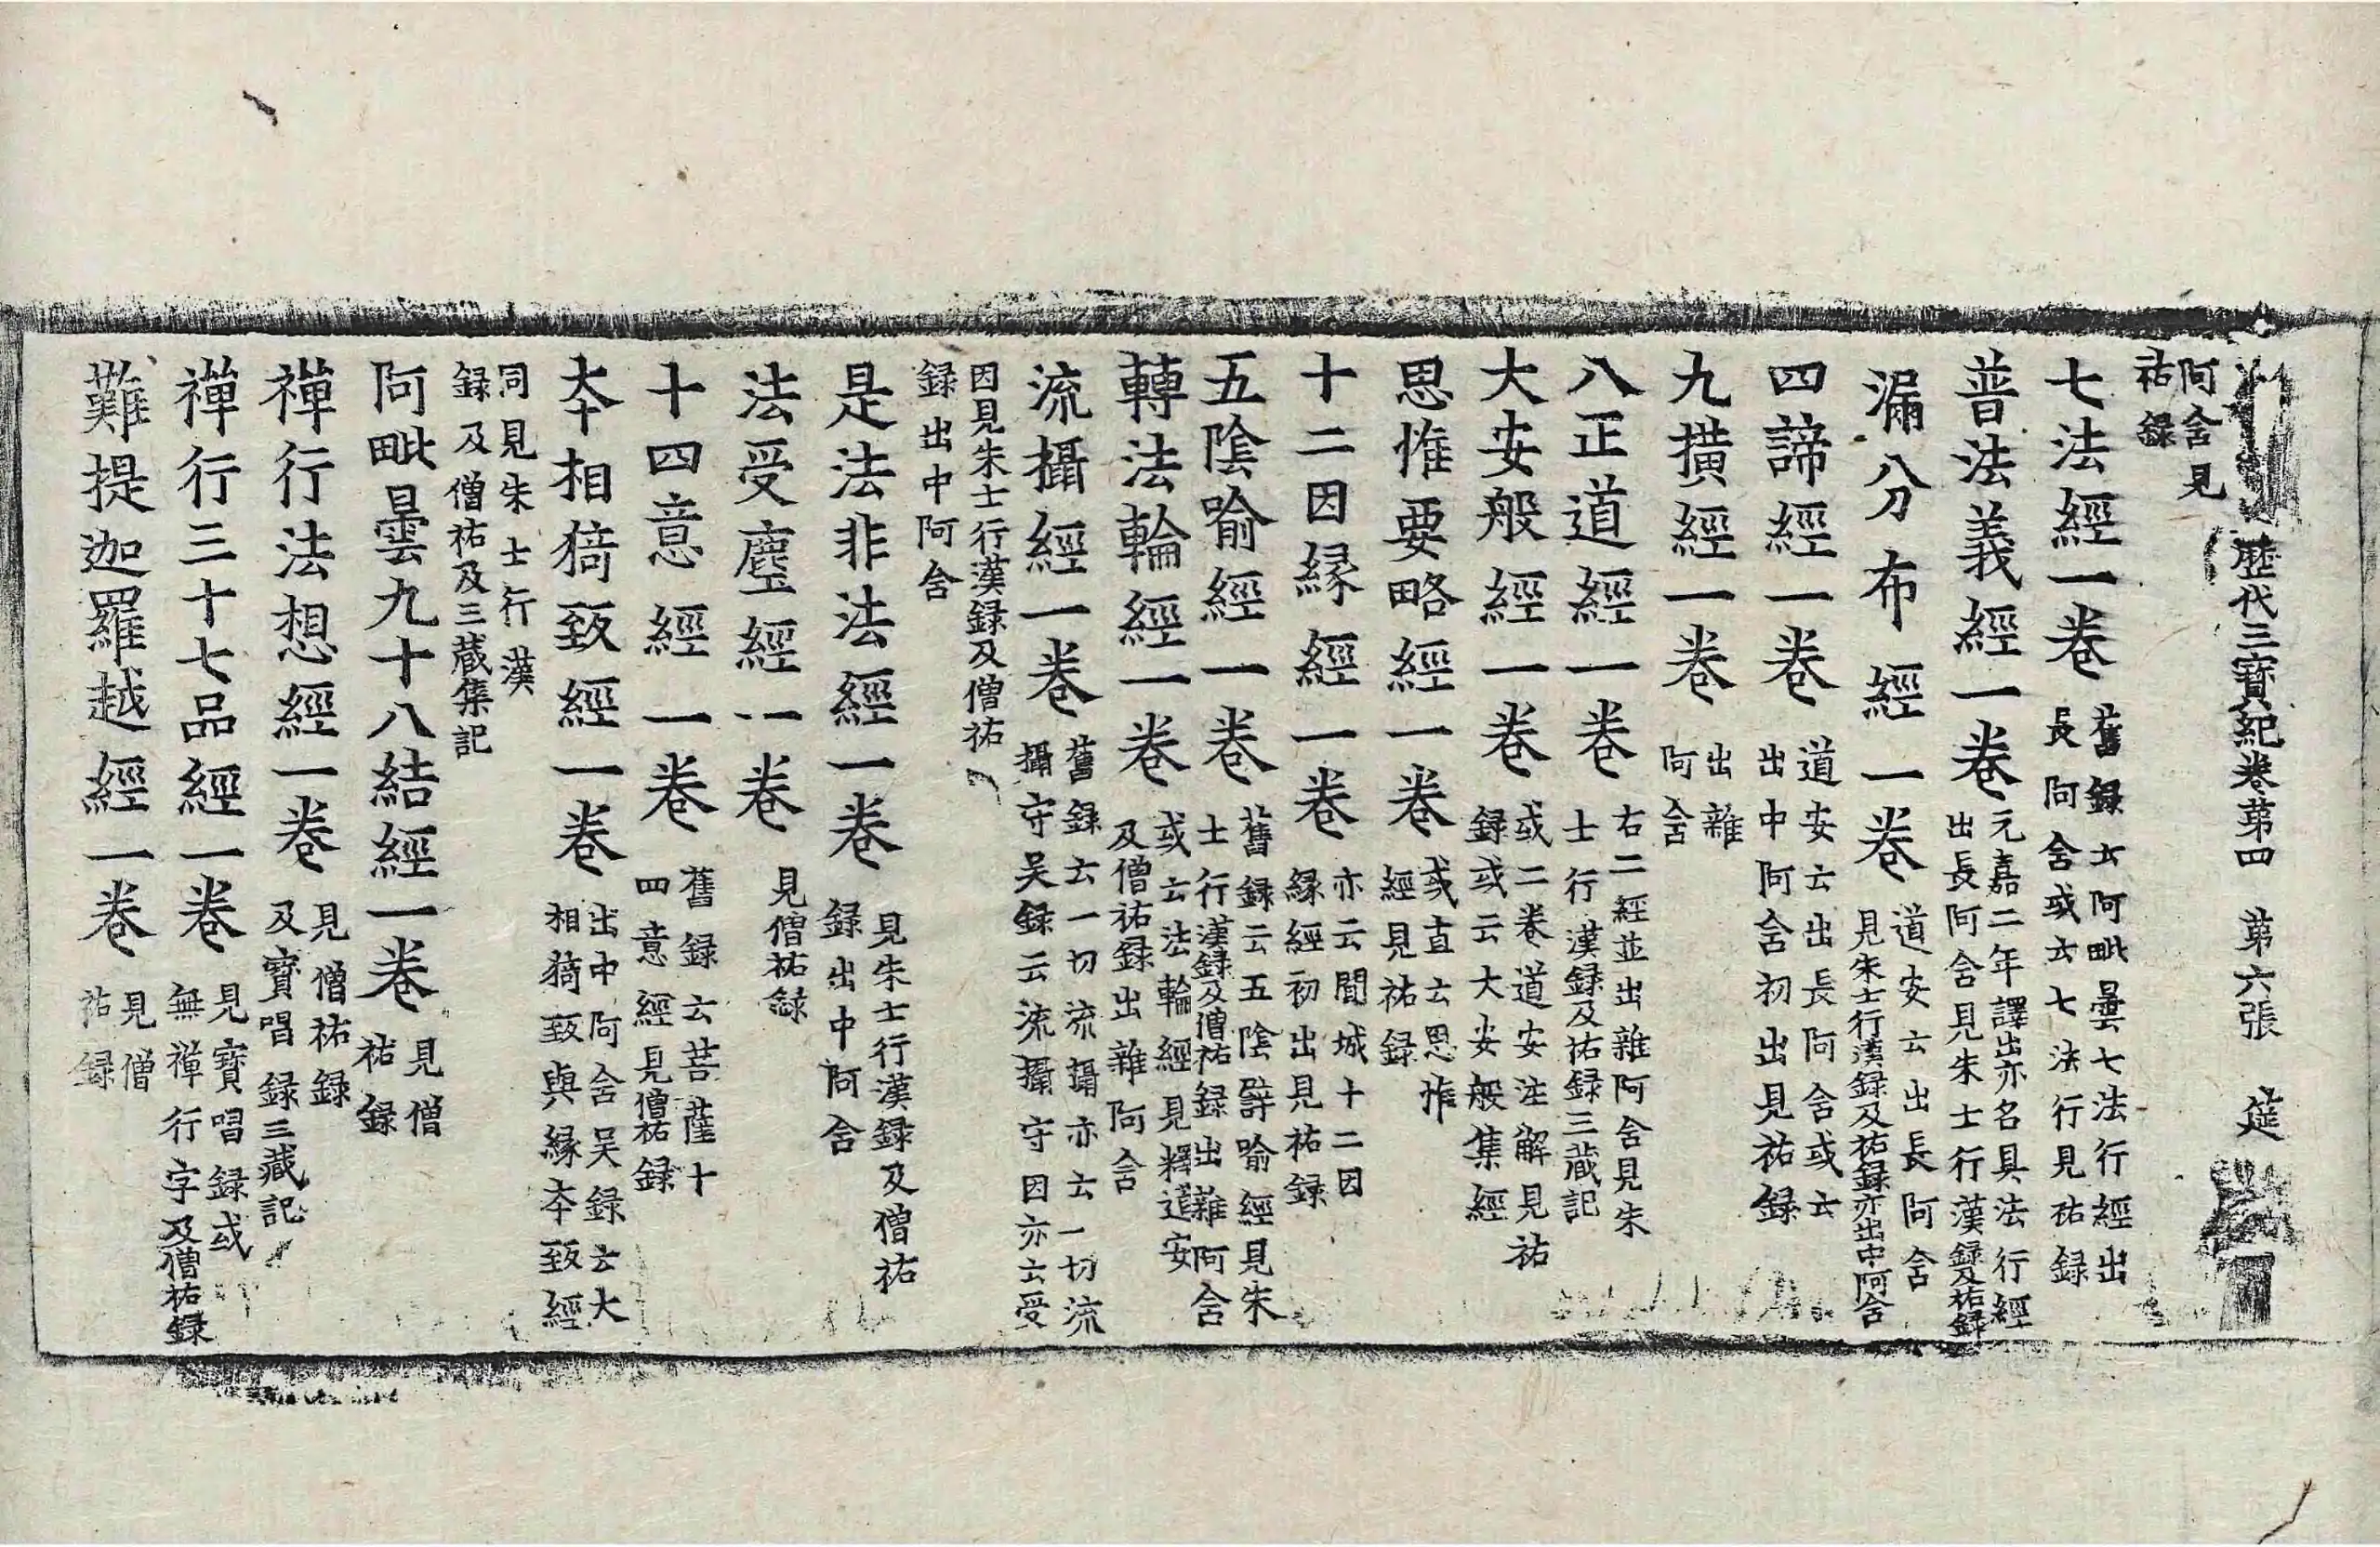 歷代三寶紀卷第四　第六張　莚
阿含見
祐錄
七法經一卷 舊錄云阿毗曇七法行經出
長阿含或云七法行見祐錄
普法義經一卷 元嘉二年譯出亦名具法行經
出長阿含見朱士行漢錄及祐錄
漏分布經一卷 道安云出長阿含
見朱士行漢錄及祐錄亦出中阿含
四諦經一卷 道安云出長阿含或云
出中阿含初出見祐錄
九撗經一卷 出雜
阿含
八正道經一卷 右二經並出雜阿含見朱
士行漢錄及祐錄三藏記
大安般經一卷 或二卷道安注解見祐
錄或云大安般集經
思惟要略經一卷 或直云思惟
經見祐錄
十二因縁經一卷 亦云聞城十二因
縁經初出見祐錄
五陰喻經一卷 舊錄云五陰譬喻經見朱
士行漢錄及僧祐錄出雜阿含
轉法輪經一卷 或云法輪經見釋道安
及僧祐錄出雜阿含
流攝經一卷 舊錄云一切流攝亦云一切流
攝守吴錄云流攝守因亦云受
因見朱士行漢錄及僧祐
錄出中阿含
是法非法經一卷 見朱士行漢錄及僧祐
錄出中阿含
法受塵經一卷 見僧祐錄
十四意經一卷 舊錄云菩薩十
四意經見僧祐錄
本相猗致經一卷 出中阿含吴錄云大
相猗致與縁本致經
同見朱士行漢
錄及僧祐及三藏集記
阿毗曇九十八結經一卷 見僧
祐錄
禪行法想經一卷 見僧祐錄
及寶唱錄三藏記
禪行三十七品經一卷 見寶唱錄或
無禪行字及僧祐錄
難提迦羅越經一卷 見僧
祐錄